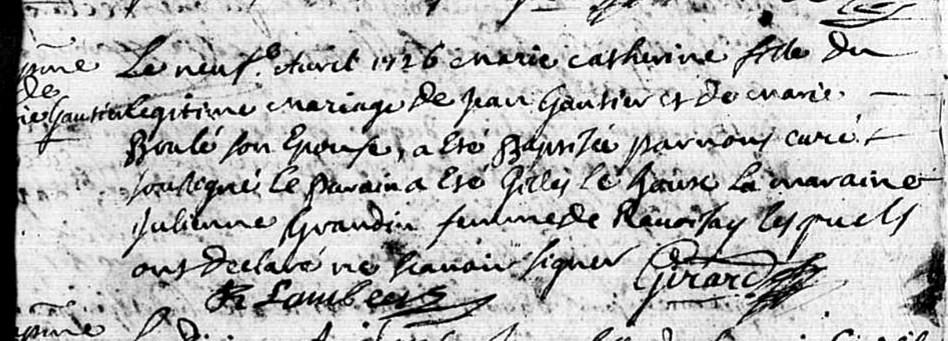 Le neuf.e Avril 1726 Marie catherine fille du
de
Gautier legitime mariage de jean Gautier et de marie
Boulé son Epouse, a Eté Baptisée par nous curé
soussigné le parain a Eté Gilles le la maraine
julienne Grandin femme de lesquels
ont declaré ne scavoir signer Girard
Lambert